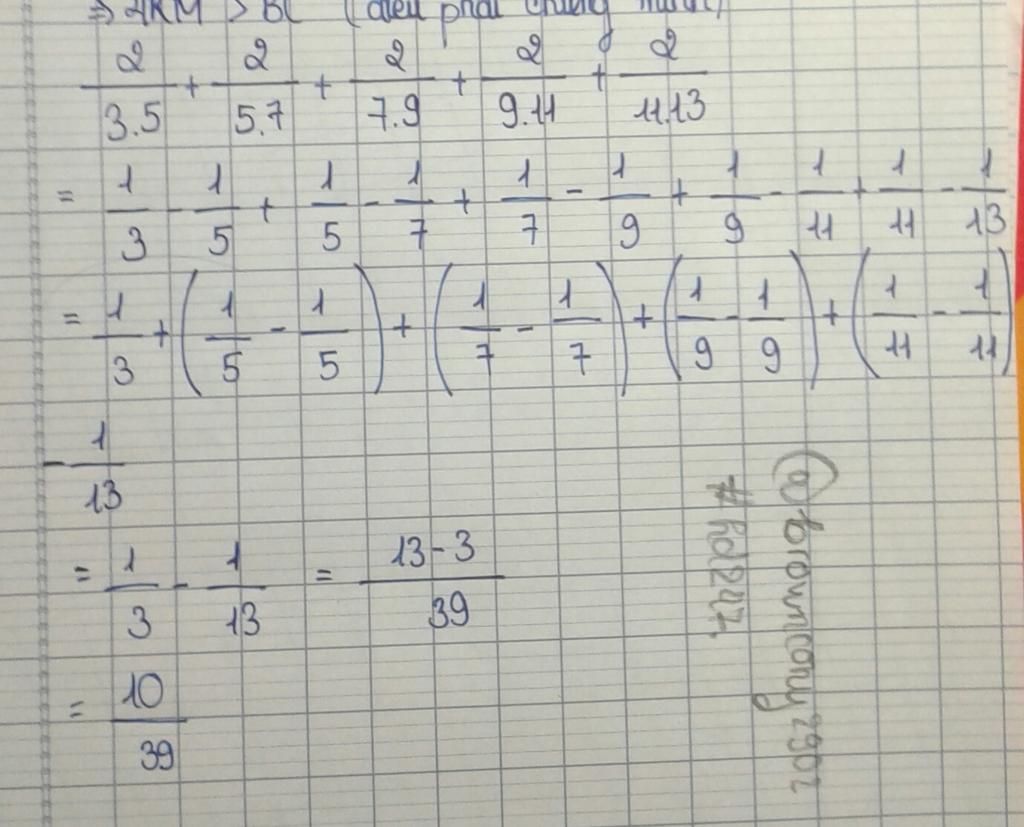 ⇒ 2KM > BC (điều phải chứng minh)
2/3.5 + 2/5.7 + 2/7.9 + 2/9.11 + 2/11.13
= 1/3 - 1/5 + 1/5 - 1/7 + 1/7 - 1/9 + 1/9 - 1/11 + 1/11 - 1/13
= 1/3 + (1/5 - 1/5) + (1/7 - 1/7) + (1/9 - 1/9) + (1/11 - 1/11)
- 1/13
= 1/3 - 1/13 = 13-3/39
= 10/39
@browncony2902